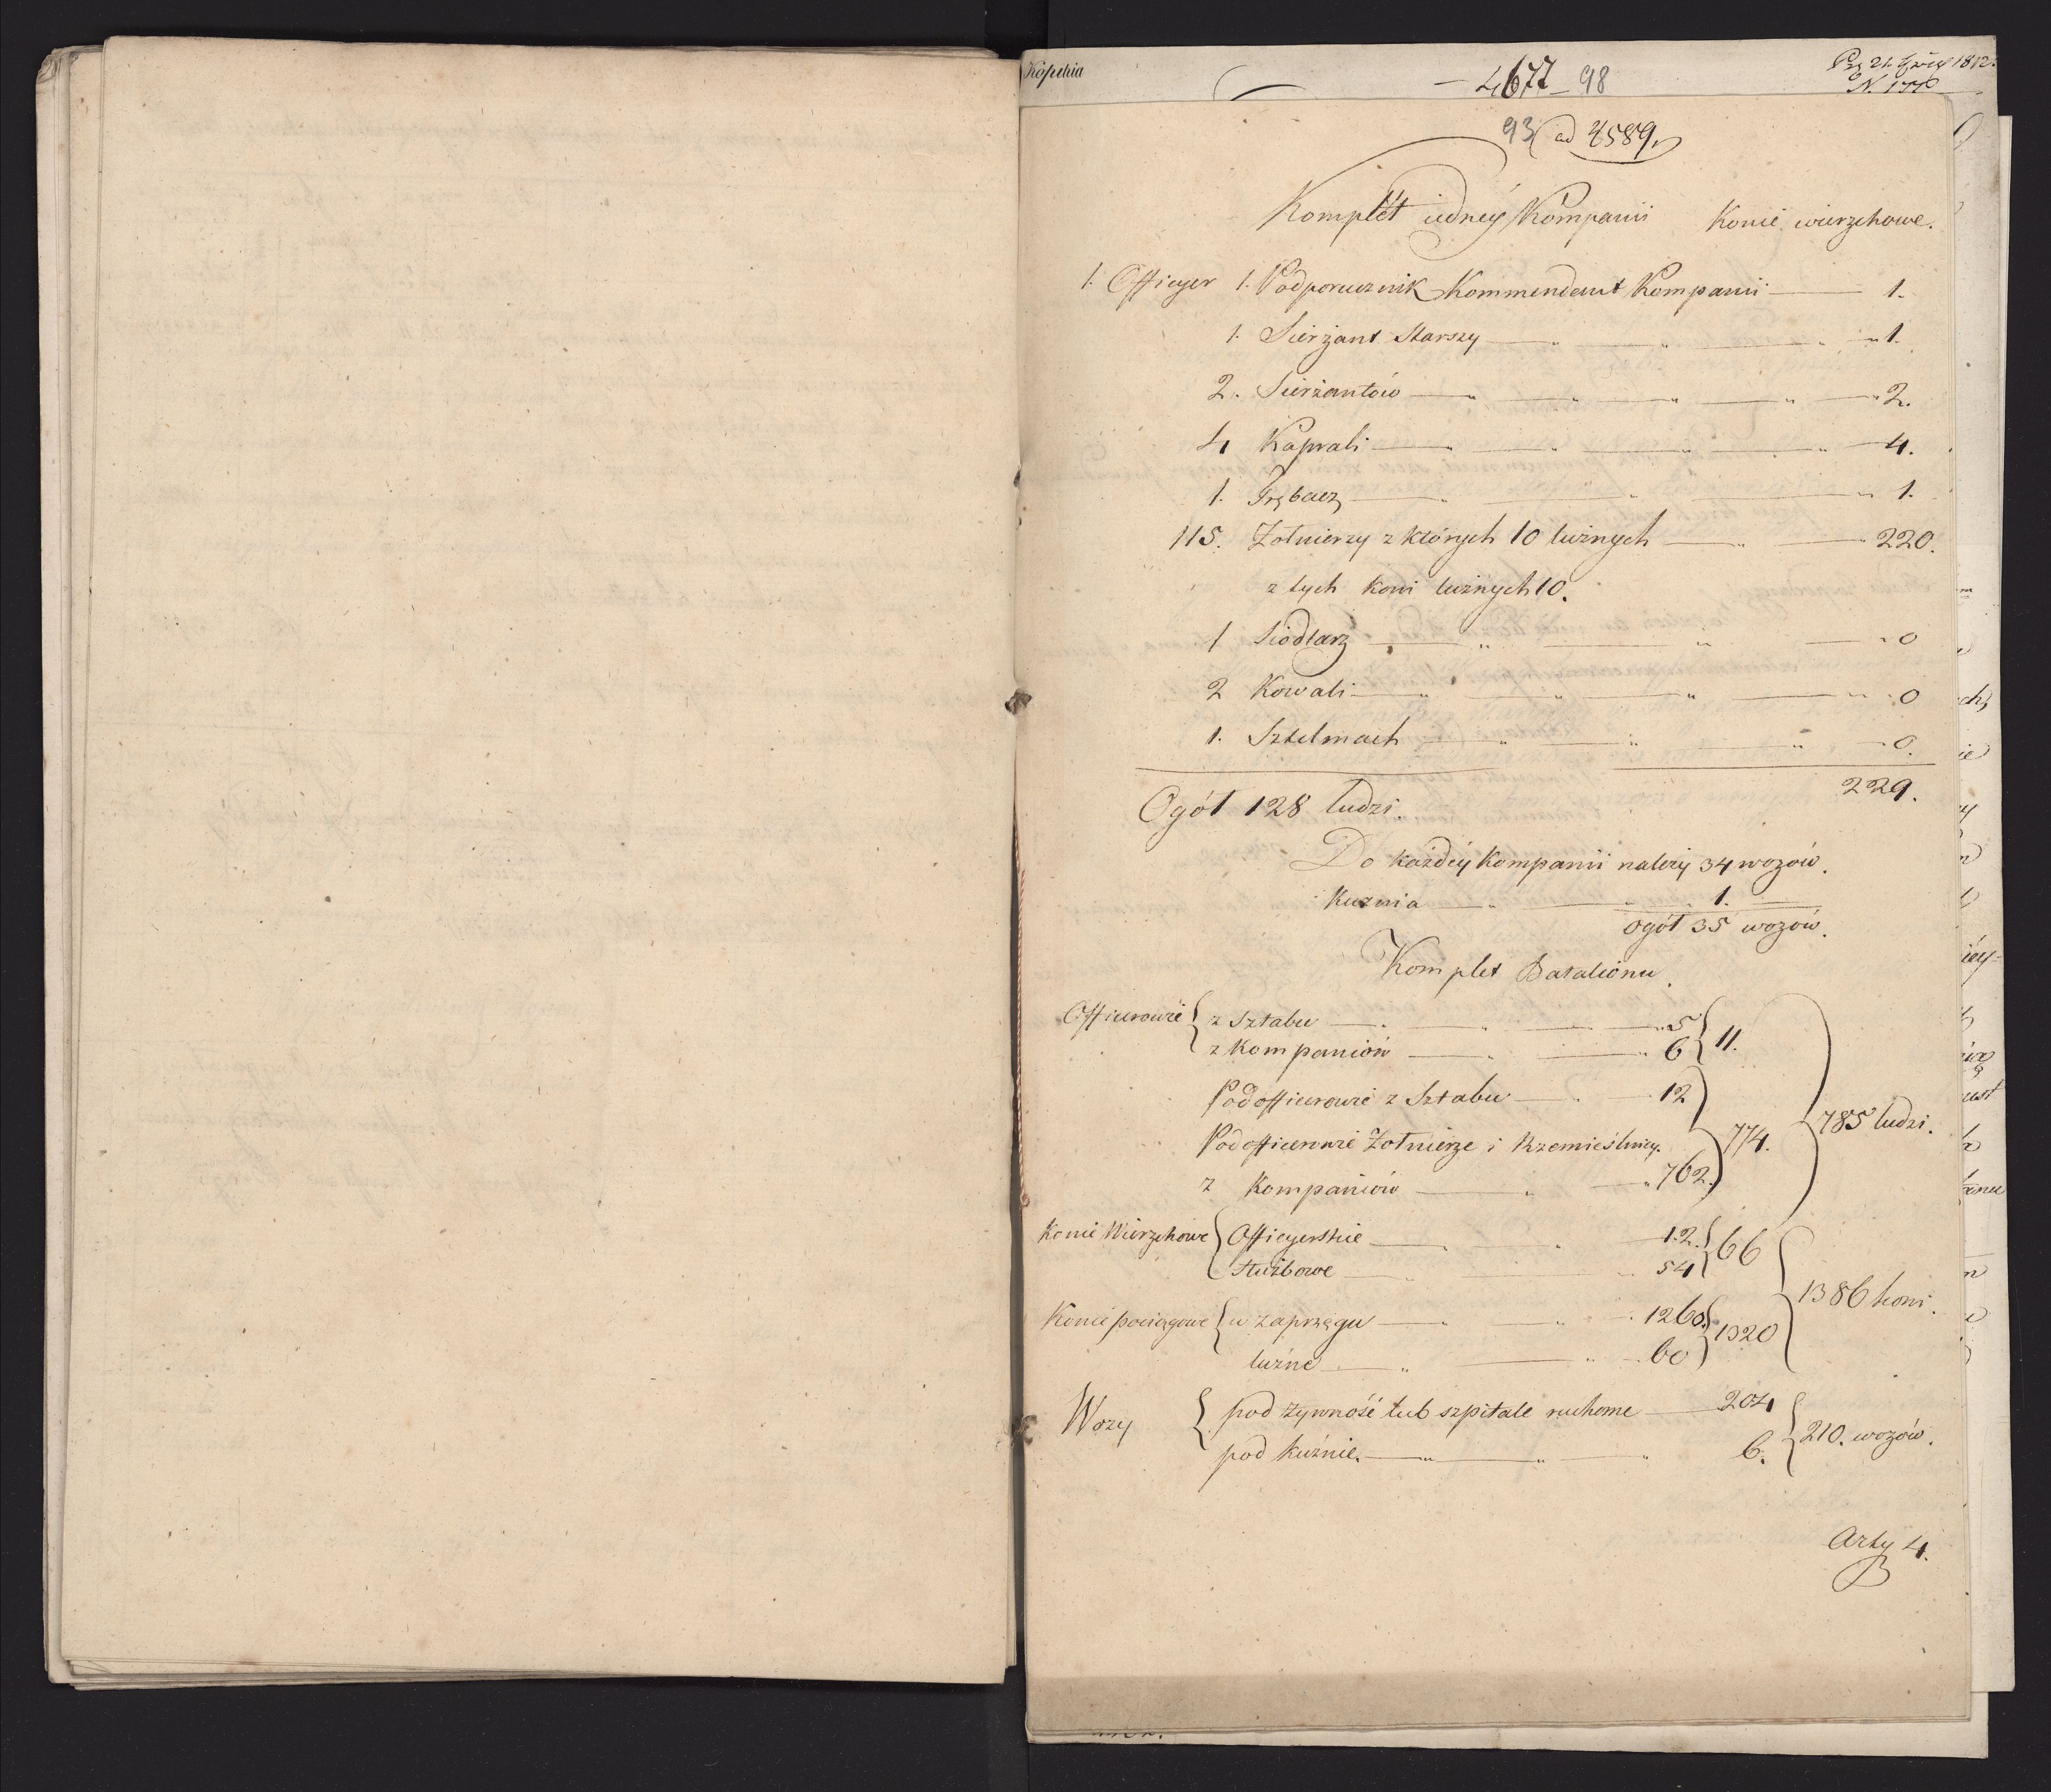 Kopchia
4677 98
93 ad 4589.
Komplét iedney Kompanii Konie wierzchowe.
1. Officyer 1. Podporucznik Kommendant Kompanii 1.
1. Sierżant Starszy 1.
2. Sierżantów 2.
4 Kaprali 4.
1. Trębacz 1.
115. Żołnierzy z których 10 luźnych 220.
z tych koni luźnych 10.
1 Siodlarz 0
2 Kowali 0
1. Sztelmach 0.
229.
Ogół 128 ludzi.
Do każdéy Kompanii należy 34 wozów.
Kuźnia 1.
ogół 35 wozów.
Komplet Batalionu.
Officerowie z Sztabu 5
z Kompaniów 6 11.
Podofficerowie z Sztabu 12
Podofficerowie Żołnierze i Rzemieślnicy. 774. 785 ludzi.
z Kompaniów 762.
Konie Wierzchowe Officyerskie 12. 66
Służbowe 54
Konie pociągowe w zaprzęgu 1260. 1320 1386 koni.
luźne 60
Wozy pod żywność lub szpitale ruchome 204
pod kuźnie. 6. 210. wozów.
Arty 4.